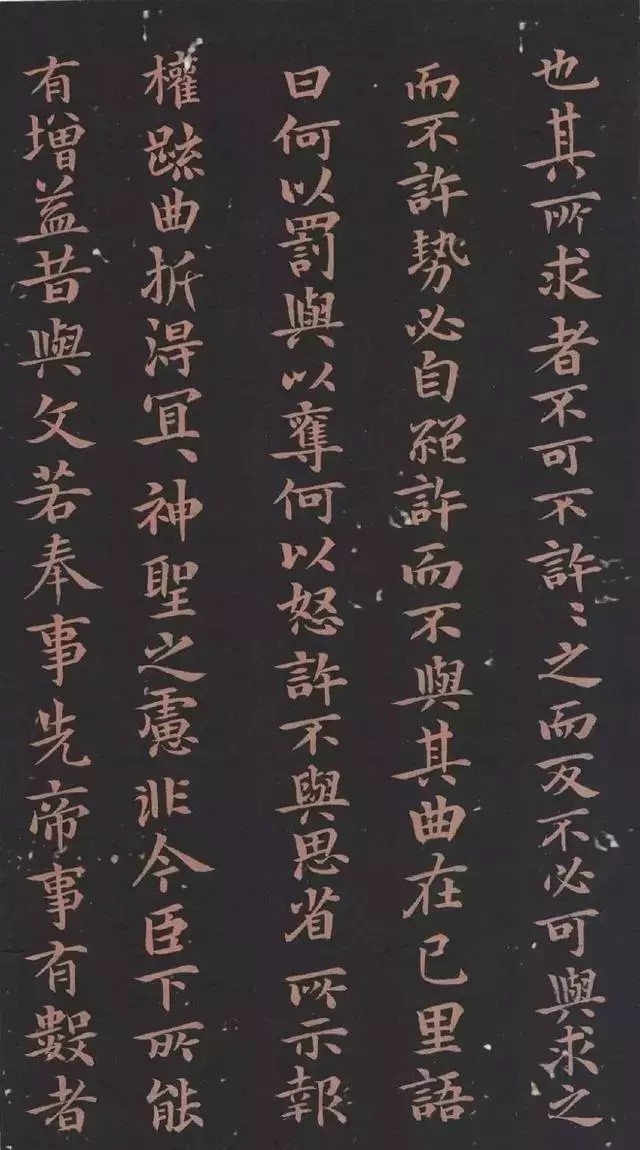 也其所求者不可不許〻之而反不必可與求之
而不許勢必自絕許而不與其曲在己里語
曰何以罰與以奪何以怒許不與思省所示報
權疏曲折得冝〻神聖之慮非今臣下所能
有增益昔與文若奉事先帝事有數者